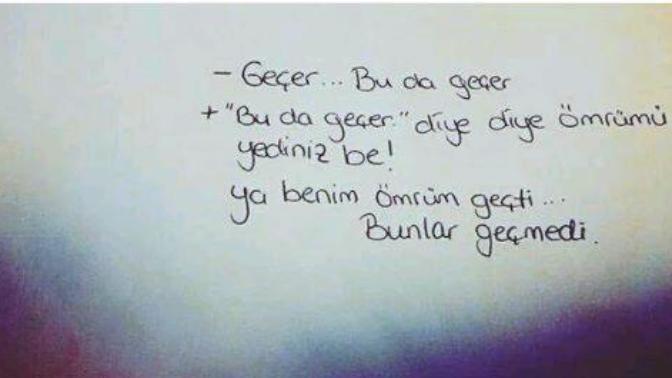 - Geçer... Bu da geçer
+ "Bu da geçer." diye diye ömrümü
yediniz be!
ya benim ömrüm geçti...
Bunlar geçmedi.